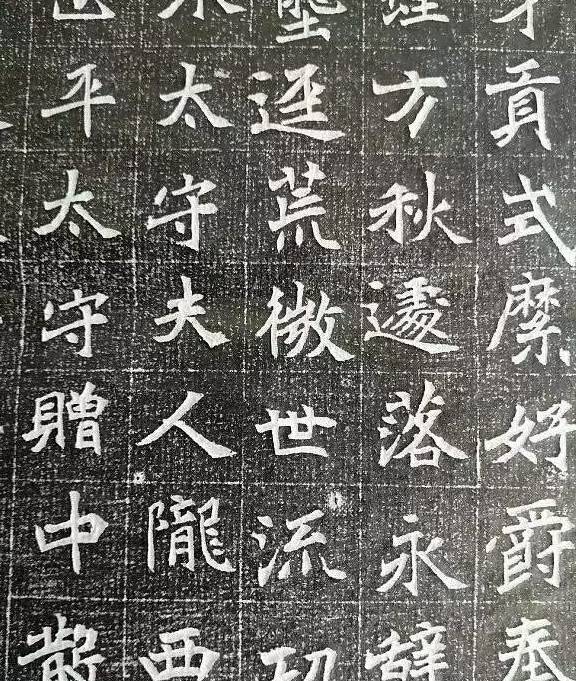 貢式縻好爵奉
方秋遽落永辭
逕荒微世流
太守夫人隴西
平太守贈中散